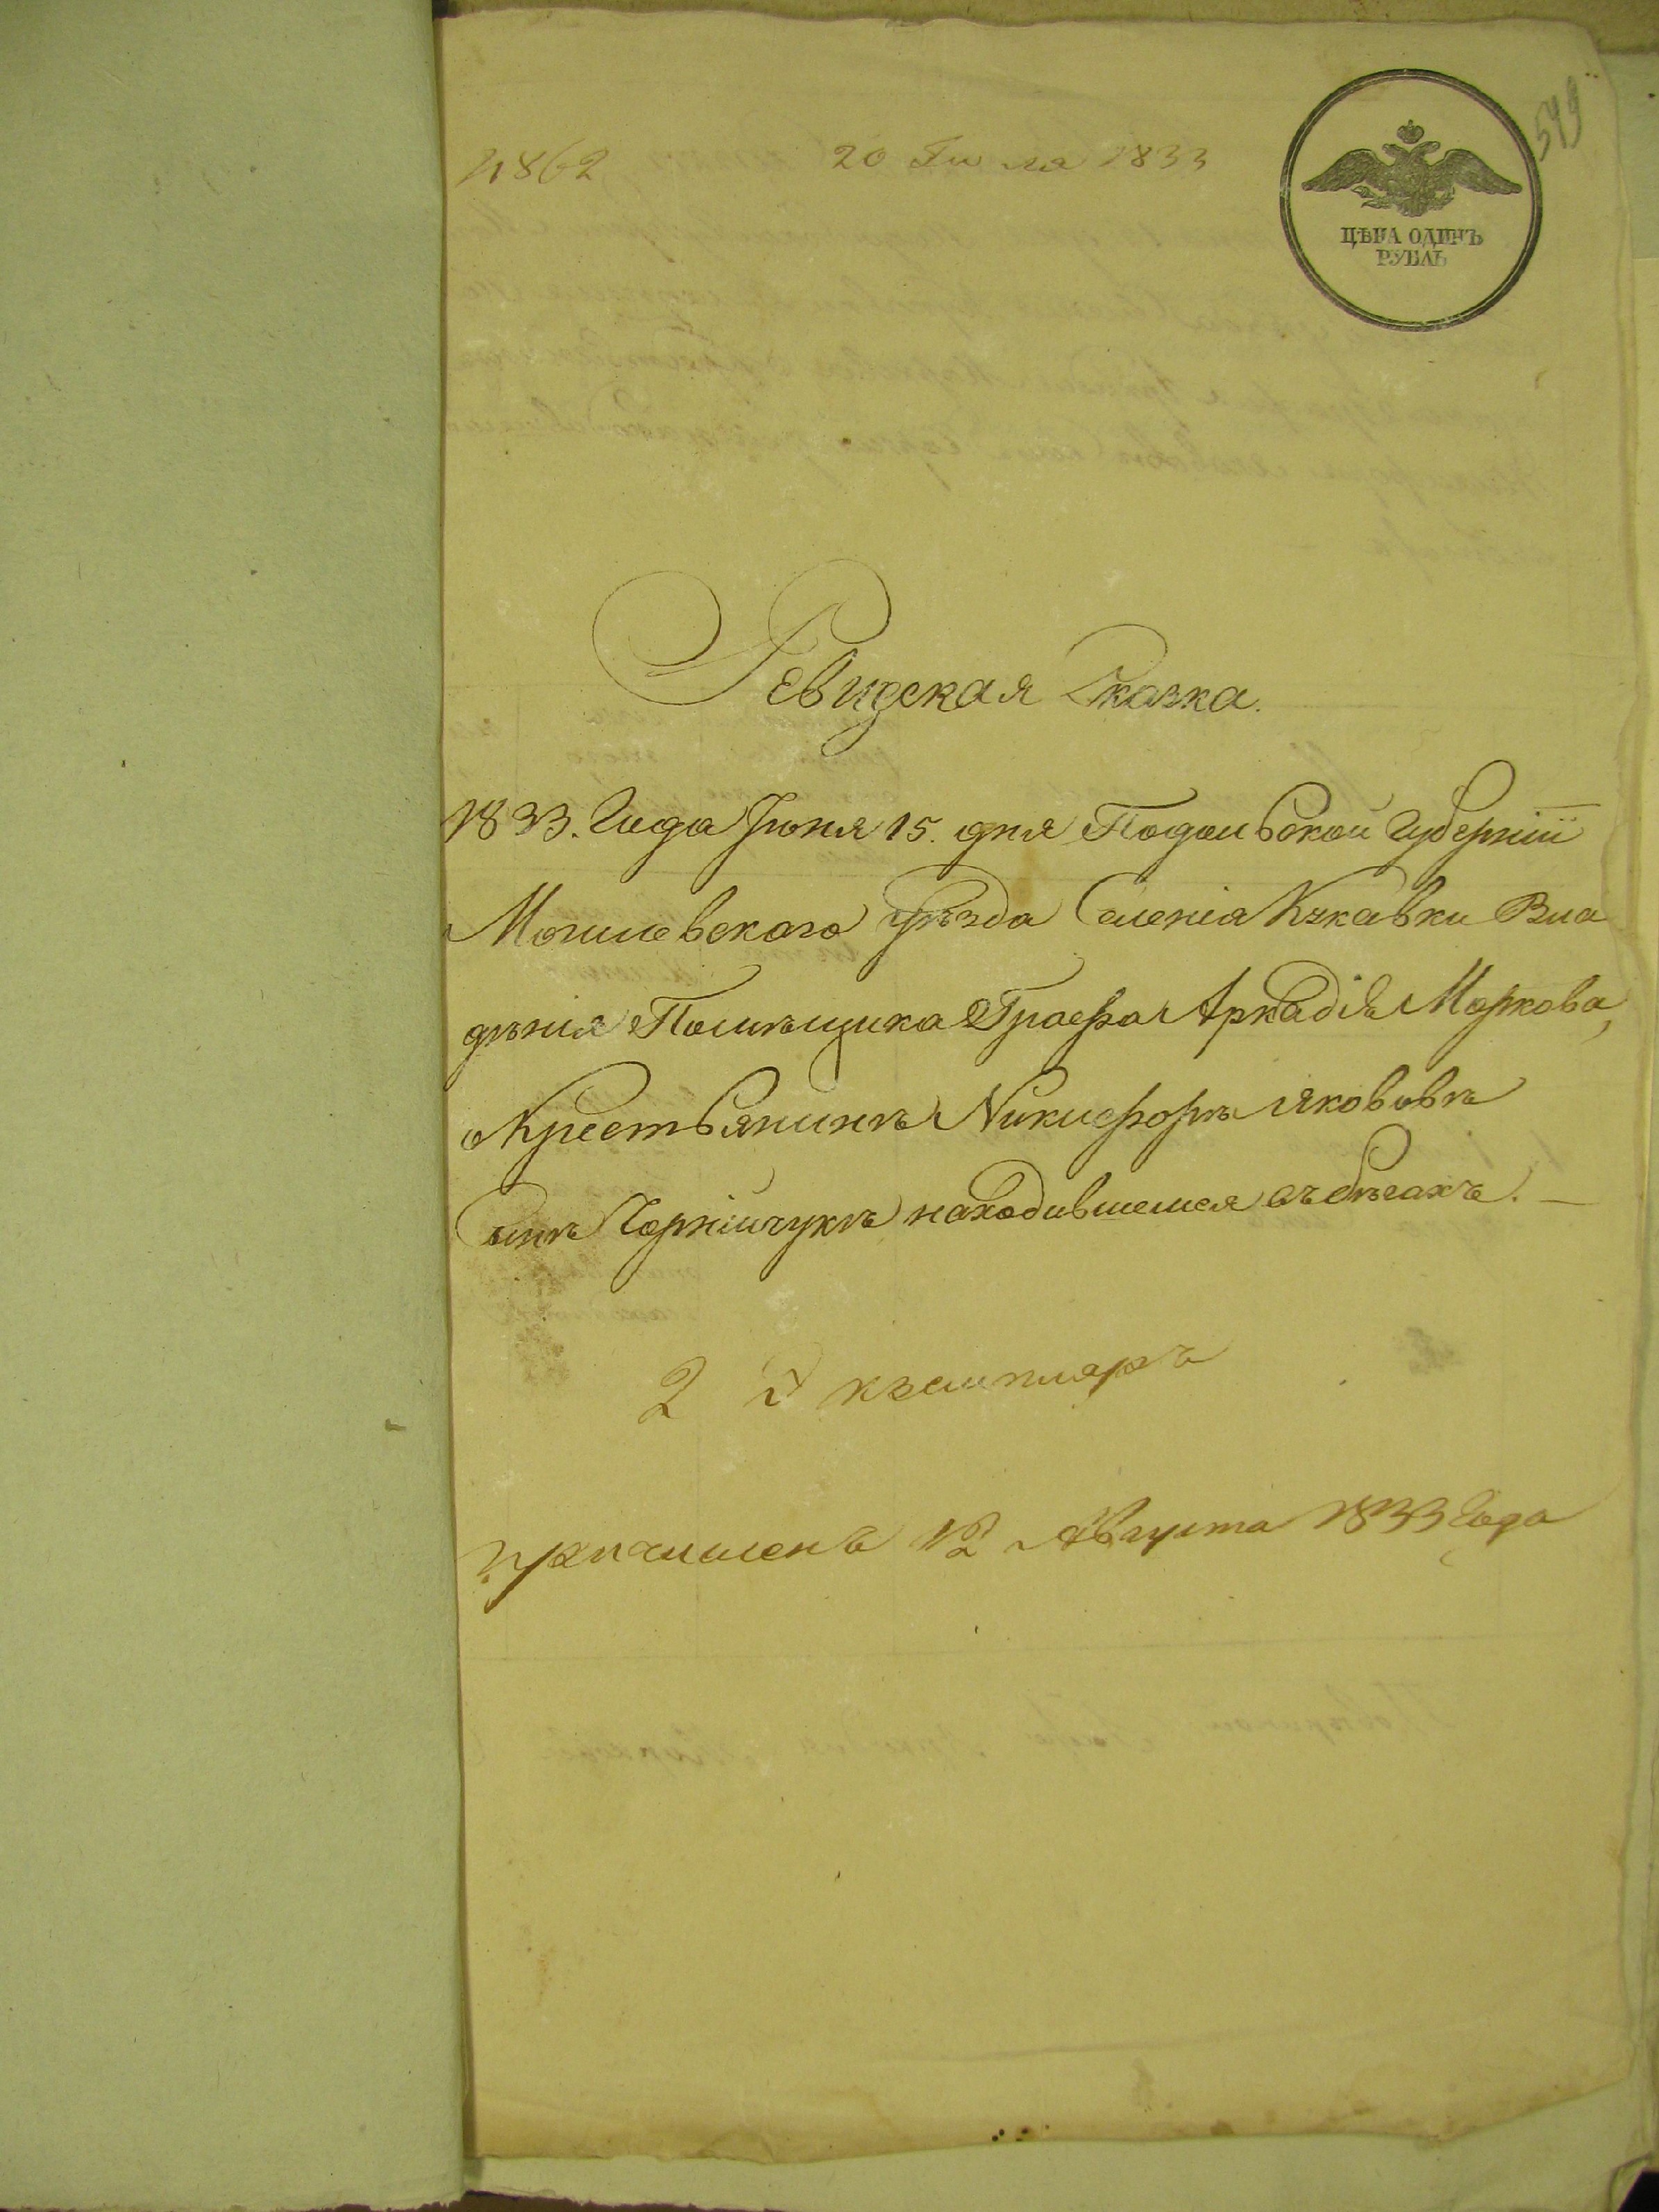 549
4862 20 Июля 1833
ЦѢНА ОДИНЪ
РУБЛЬ
Ревизская Сказка.
1833. Года Июня 15. дня Подольской Губерніи
Могилевского уѣзда Селенія Кукавки Вла
дѣнія Помѣщика Графа Аркадія Моркова,
Крестьянинъ Никифоръ Якововъ
сынъ Чорнійчукъ находившейся въ бѣгахъ. —
2 й кземпляръ
причисленъ 12 Августа 1833 Года